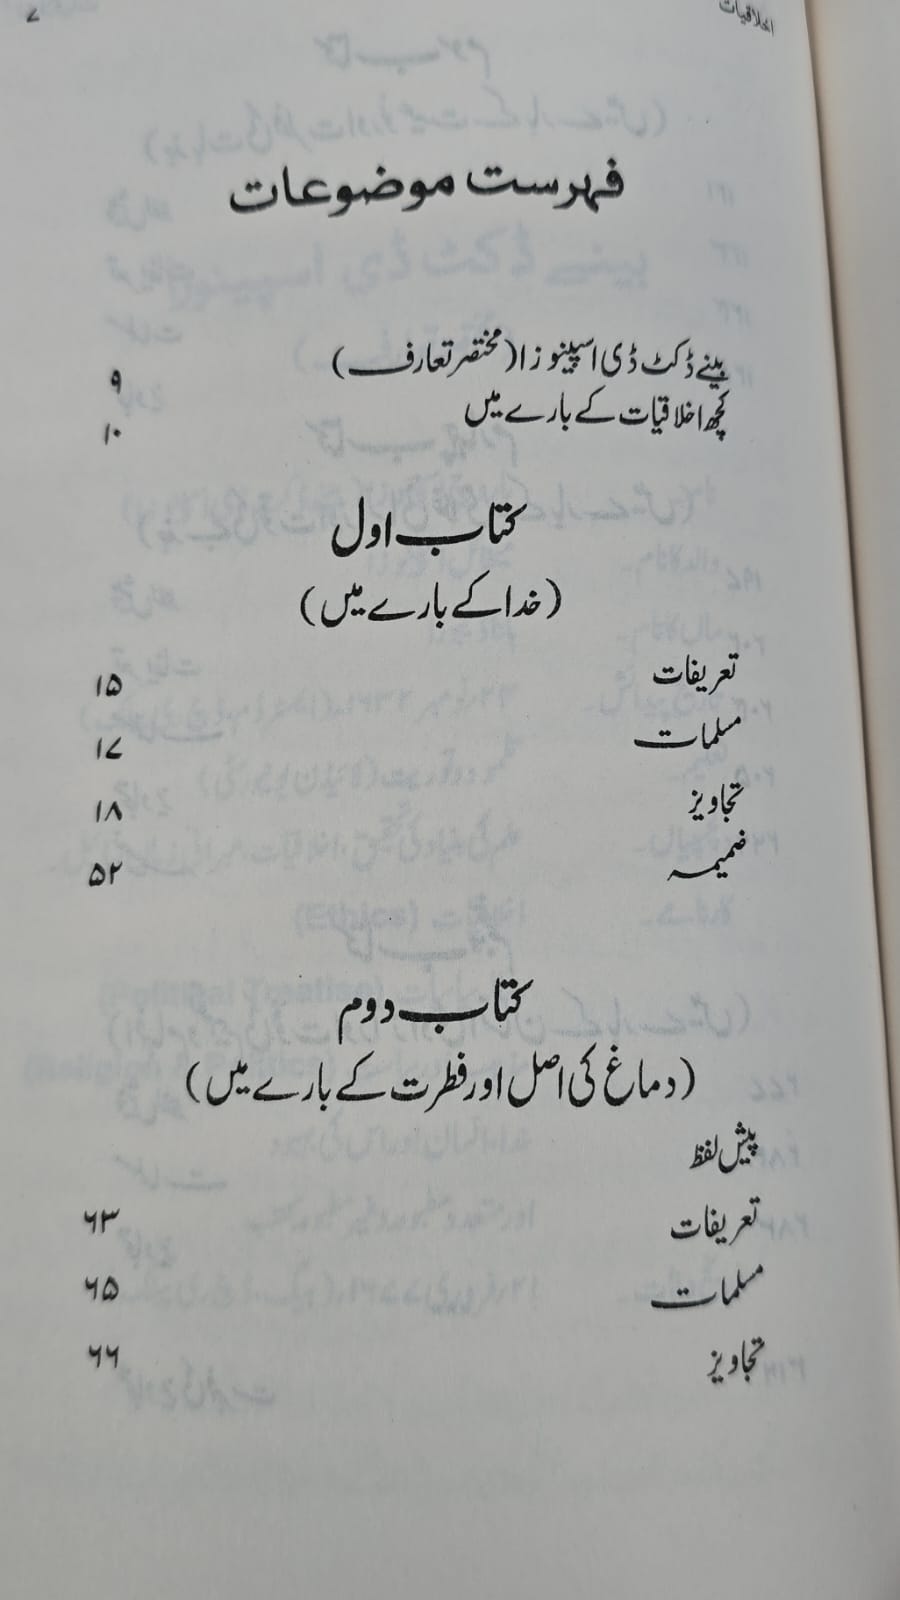 اخلاقیات ۷
فہرست موضوعات
بینے ڈکٹ ڈی اسپینوزا (مختصر تعارف) ۹
کچھ اخلاقیات کے بارے میں ۱۰
کتاب اول
(خدا کے بارے میں)
تعریفات ۱۵
مسلمات ۱۷
تجاویز ۱۸
ضمیمہ ۵۲
کتاب دوم
(دماغ کی اصل اور فطرت کے بارے میں)
پیش لفظ
تعریفات ۶۳
مسلمات ۶۵
تجاویز ۶۶